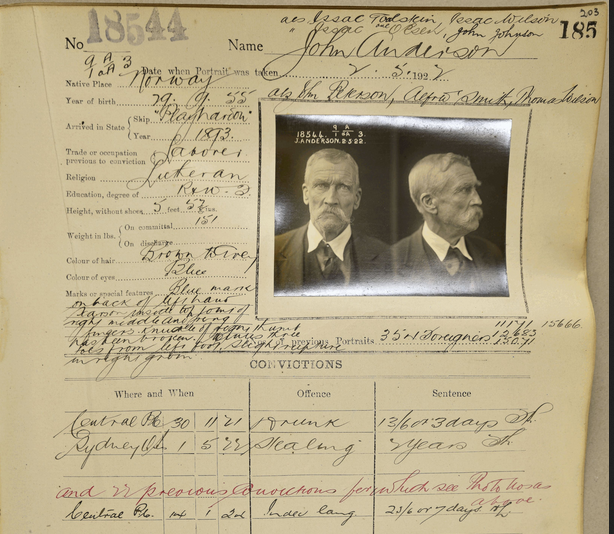 203
als Issac Torlskin, Issac Wilson
No 18544
" Issac Olsen, John Johnson
Name John Anderson
185
9 A 3
1 aA
Date when Portrait was taken 2. 5. 1922
Native Place Norway
als Wm Peterson, Alfred Smith, Thomas
Year of birth 29. 9. 55
Arrived in State { Ship
Year 1893.
Trade or occupation previous to conviction } Laborer
Religion Lutheran
Education, degree of R & W
Height, without shoes 5 feet ins.
Weight in lbs. { On committal 151
On discharge
Colour of hair Brown to Grey
Colour of eyes Blue
Marks or special features Blue mark
on back of left hand
right middle and ring
fingers. knuckle of right thumb
has been broken. three
toes from
in right groin
18544. 9 A 3.
1 aA
J.ANDERSON. 2·5·22.
of previous Portraits 354 Foreigners 15666
CONVICTIONS
Where and When Offence Sentence
Central P.C. 30 11 21 Drunk 13/6 or 3 days
Sydney 1 5 22 Stealing 2 years
and 22 previous convictions for which see Photo Nos
above.
Central P.C. 14 1 24 Indec lang 23/6 or 7 days